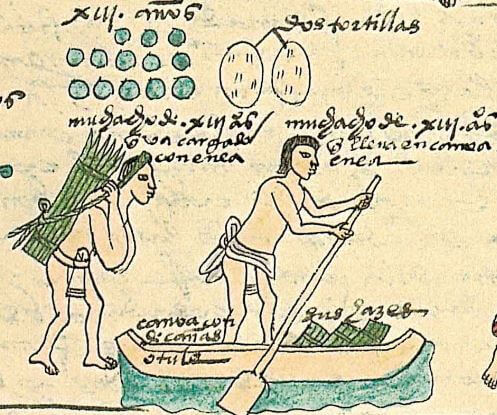 xiii. años
dos tortillas
muchacho de. xiii. aºs
q va cargado
con enea
muchacho de. xiii. aºs
q lleva en canoa
enea
canoa con
de cañas
o tule
sus hazes